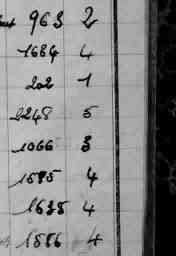 963 2
1684 4
202 1
2248 5
1066 3
1595 4
1635 4
1556 4